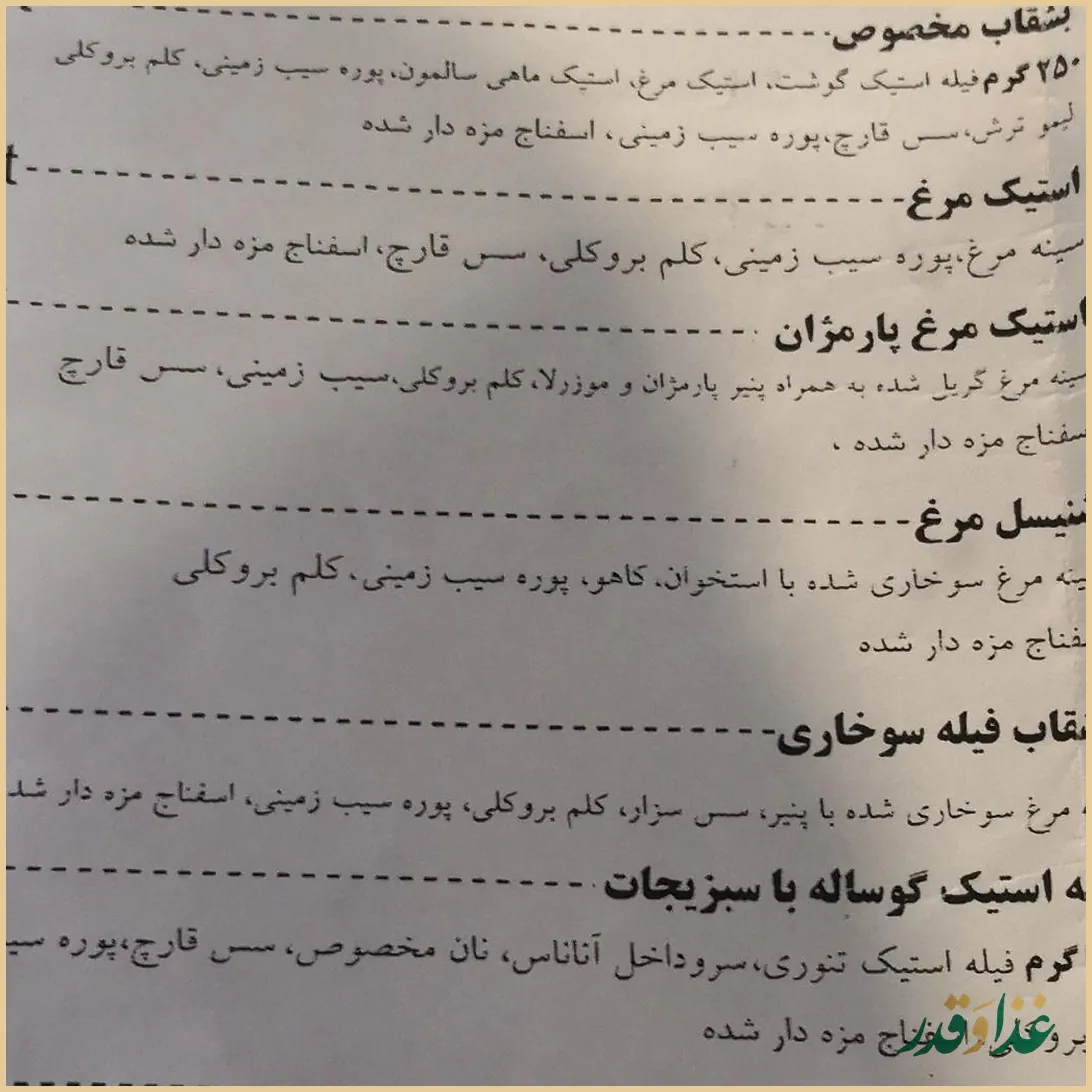 بشقاب مخصوص
۲۵۰ گرم فیله استیک گوشت، استیک مرغ، استیک ماهی سالمون، پوره سیب زمینی، کلم بروکلی
لیمو ترش، سس قارچ، پوره سیب زمینی، اسفناج مزه دار شده
t
استیک مرغ
سینه مرغ، پوره سیب زمینی، کلم بروکلی، سس قارچ، اسفناج مزه دار شده
استیک مرغ پارمژان
سینه مرغ گریل شده به همراه پنیر پارمژان و موزرلا، کلم بروکلی، سیب زمینی، سس قارچ
سفناج مزه دار شده ،
نیسل مرغ
ینه مرغ سوخاری شده با استخوان، کاهو، پوره سیب زمینی، کلم بروکلی
فناج مزه دار شده
قاب فیله سوخاری
مرغ سوخاری شده با پنیر، سس سزار، کلم بروکلی، پوره سیب زمینی، اسفناج مزه دار شد
ه استیک گوساله با سبزیجات
گرم فیله استیک تنوری، سرو داخل آناناس، نان مخصوص، سس قارچ، پوره سی
بروکلی، اسفناج مزه دار شده
غذا و قدر